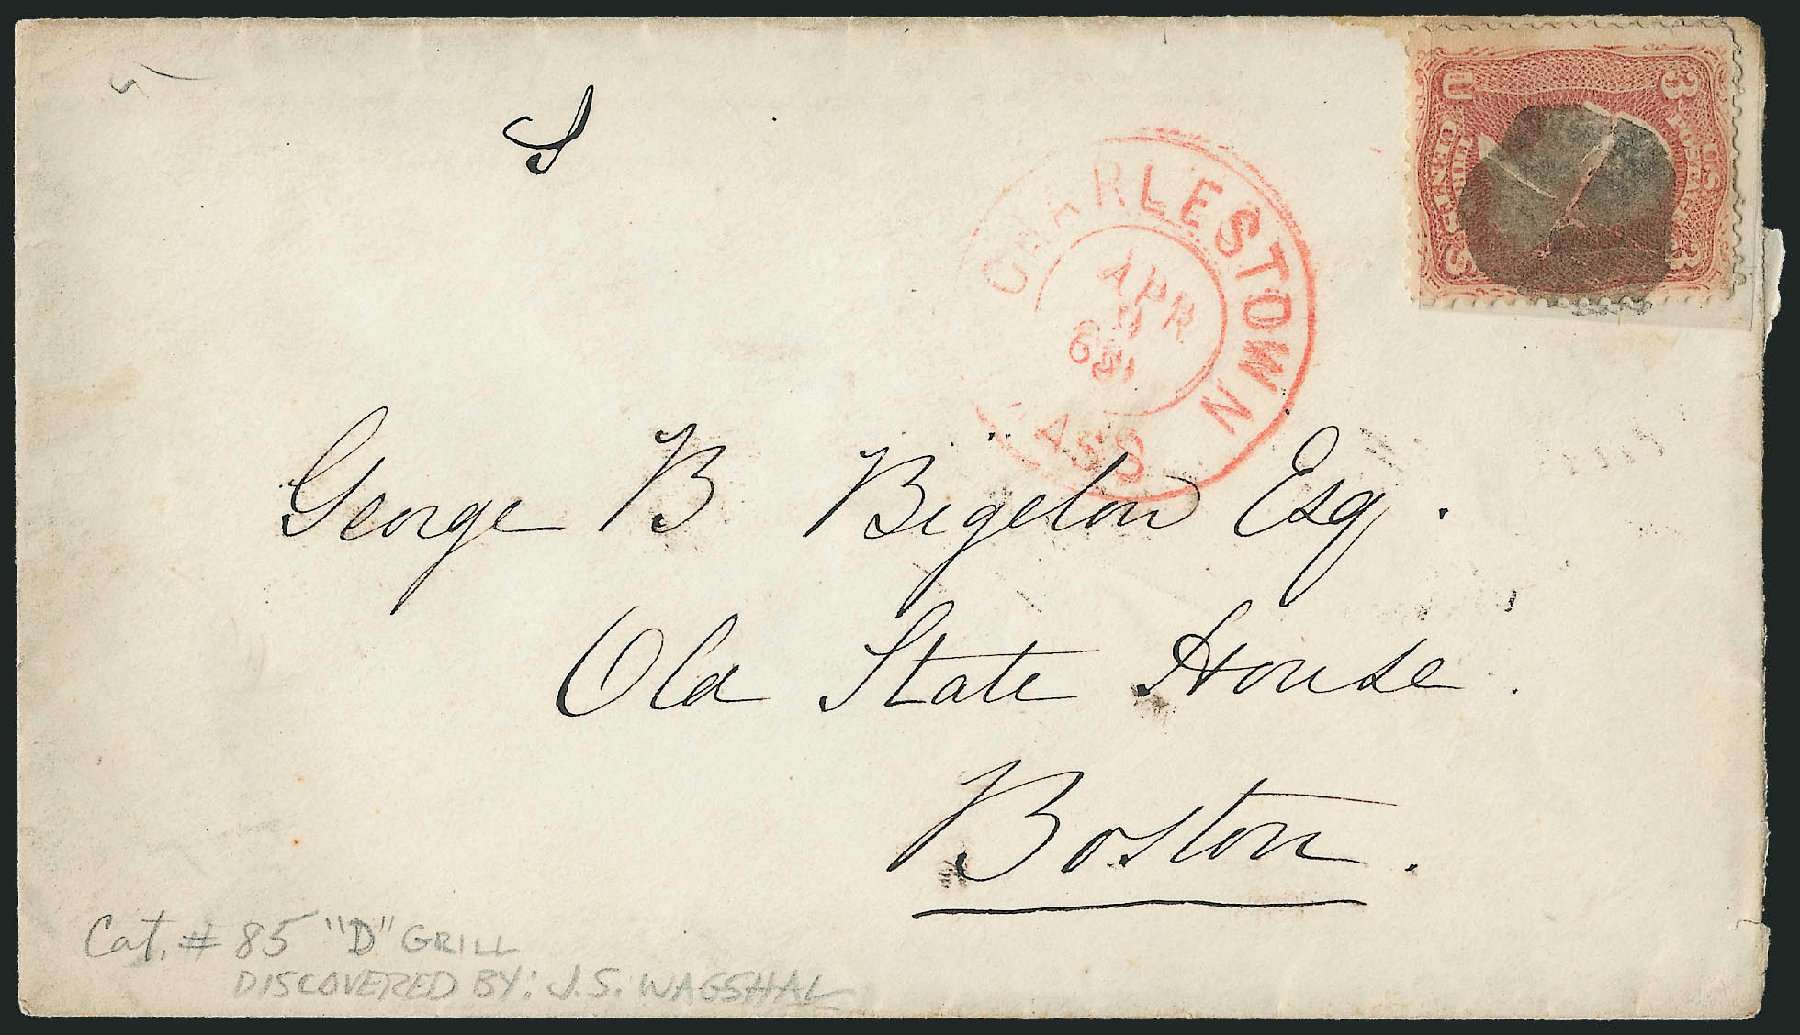 U 3
U.S. POSTAGE
THREE CENTS
S 3
CHARLESTOWN
APR
68
MASS
George B Bigelow Esq.
Old State House.
Boston.
Cat. # 85 "D" GRILL
DISCOVERED BY: J.S. WAGSHAL